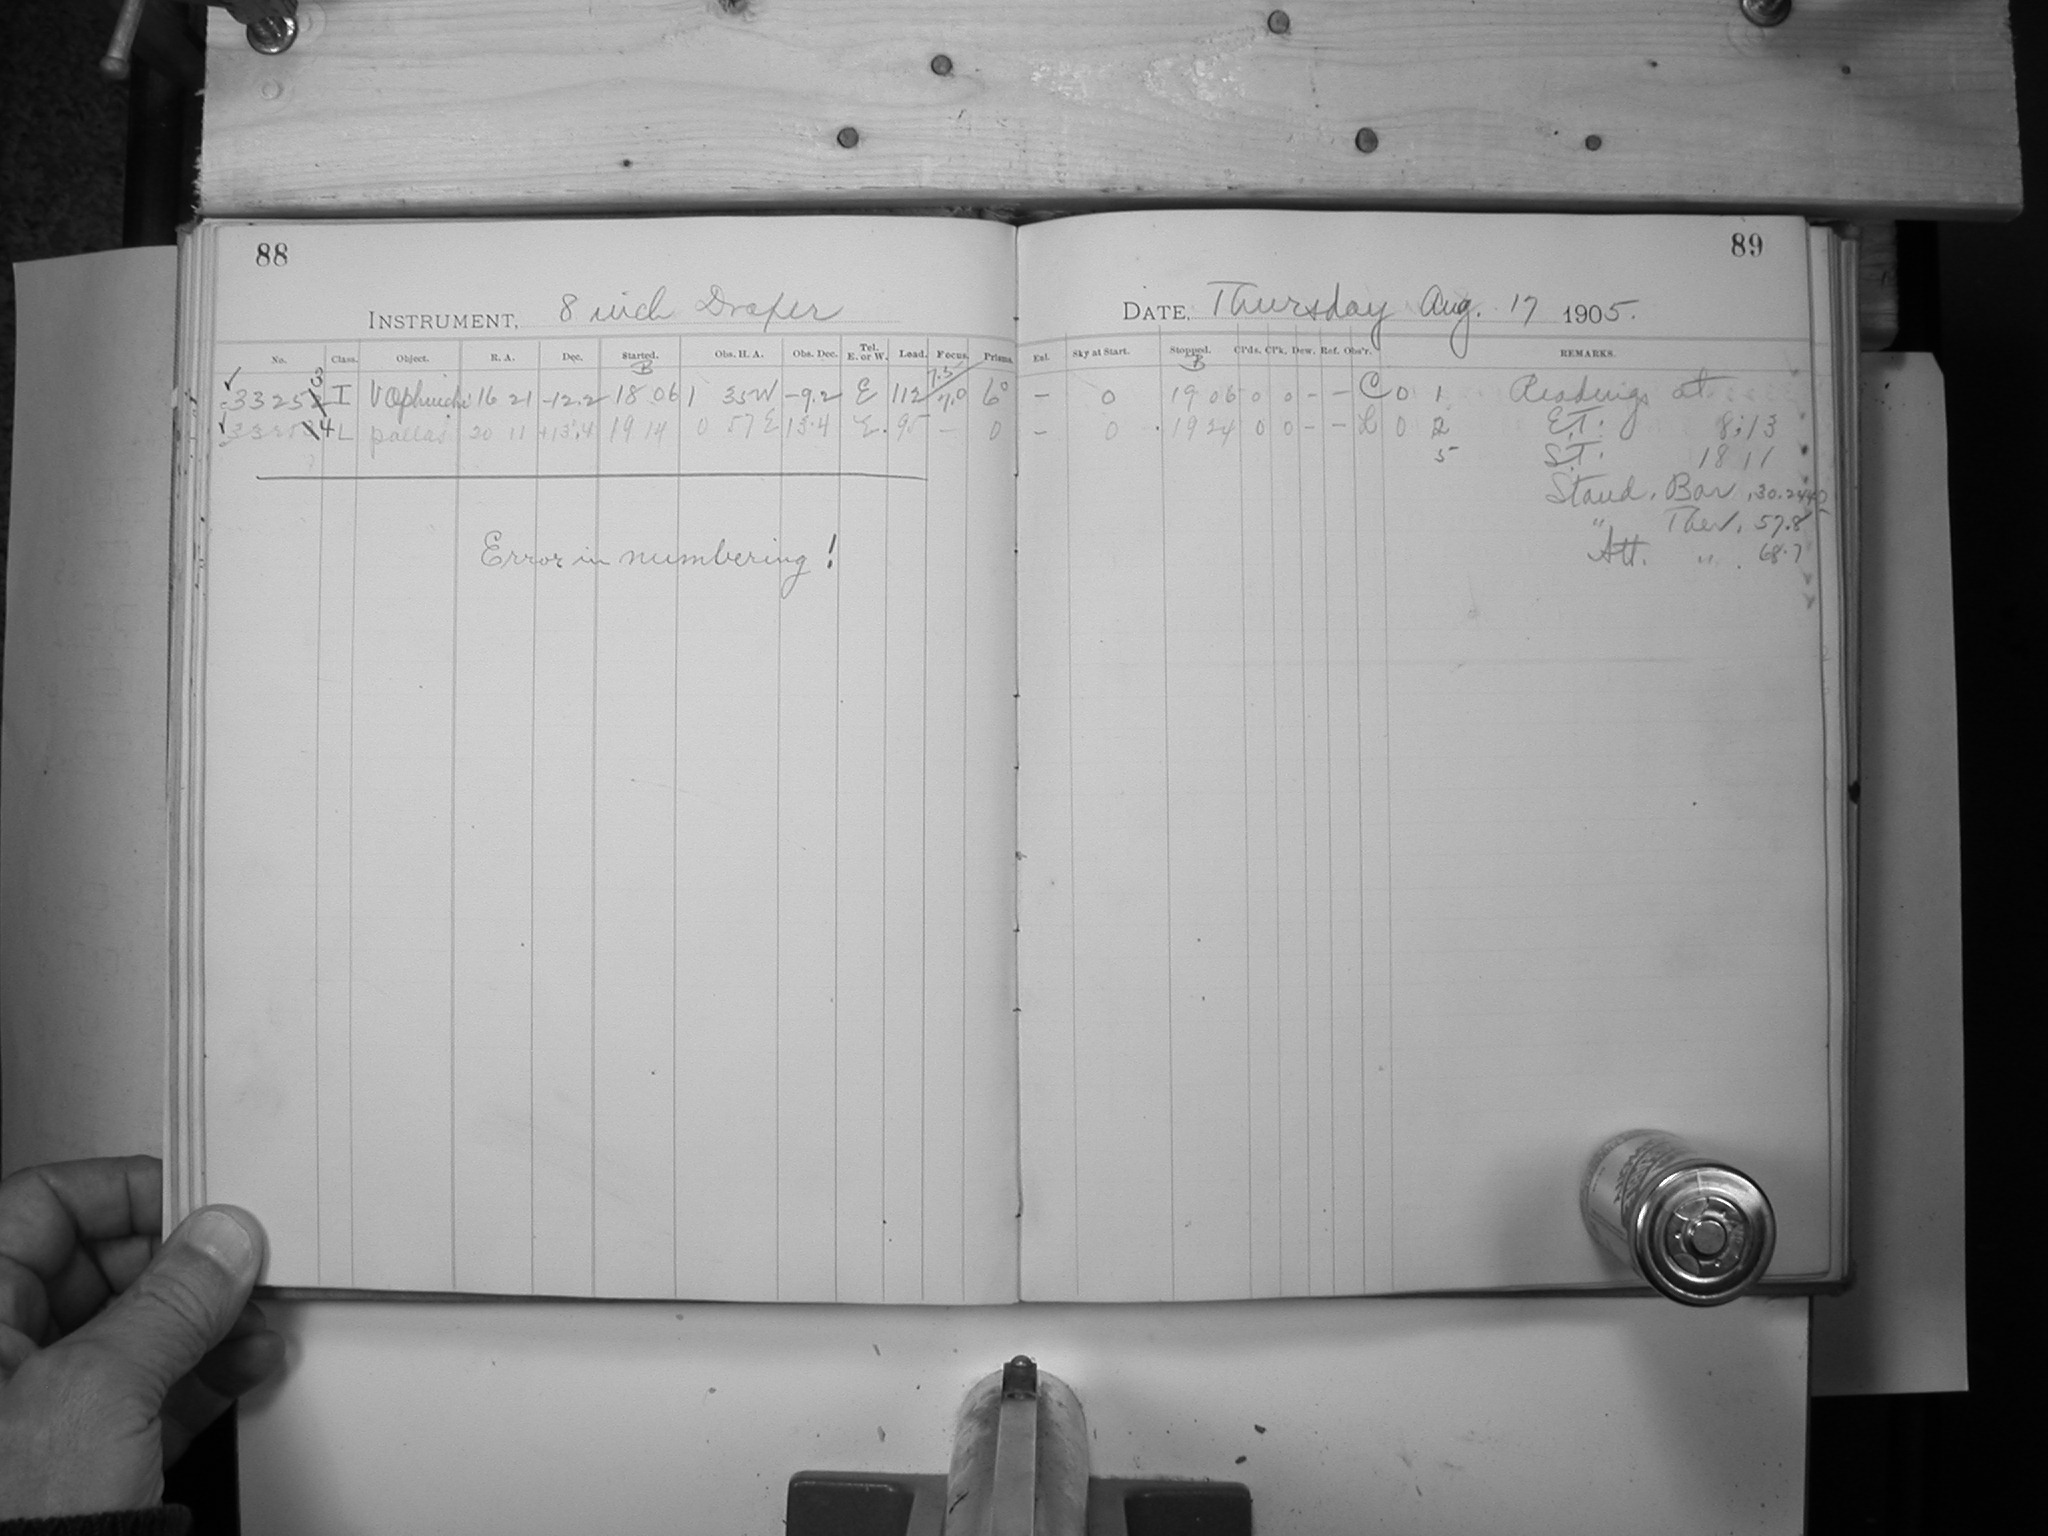 88
INSTRUMENT, 8 inch Draper
No. Class. Object. R. A. Dec. Started. Obs. H. A. Obs. Dec. Tel. E. or W. Lead. Focus. Prisms.
B
33252 3 I V Ophiuchi 16 21 -12.2 18 06 1 35W -9.2 E 112 7.3/7.0 6°
33253 4 L Pallas 20 11 +13.4 19 14 0 57 E 13.4 E. 95 – 0
Error in numbering!
89
DATE, Thursday Aug. 17 1905.
Exl. Sky at Start. Stopped. Cl'ds. Cl'k. Dew. Ref. Obs'r. REMARKS.
B
– 0 19 06 0 0 – – C 0 1 Readings at
– 0 19 24 0 0 – – L 0 2 E.T. 8:13
5 S.T. 18 11
Stand. Bar. 30.244
" Ther. 57.8
Att. " 68.7